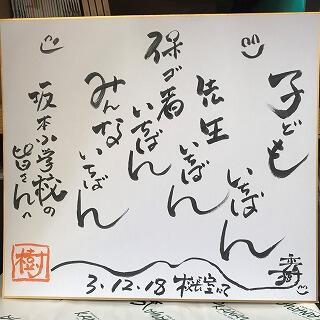 子ども いちばん
先生 いちばん
保ゴ者 いちばん
みんな いちばん
坂本小学校の
皆さんへ
樹
3.12.18 校長室にて